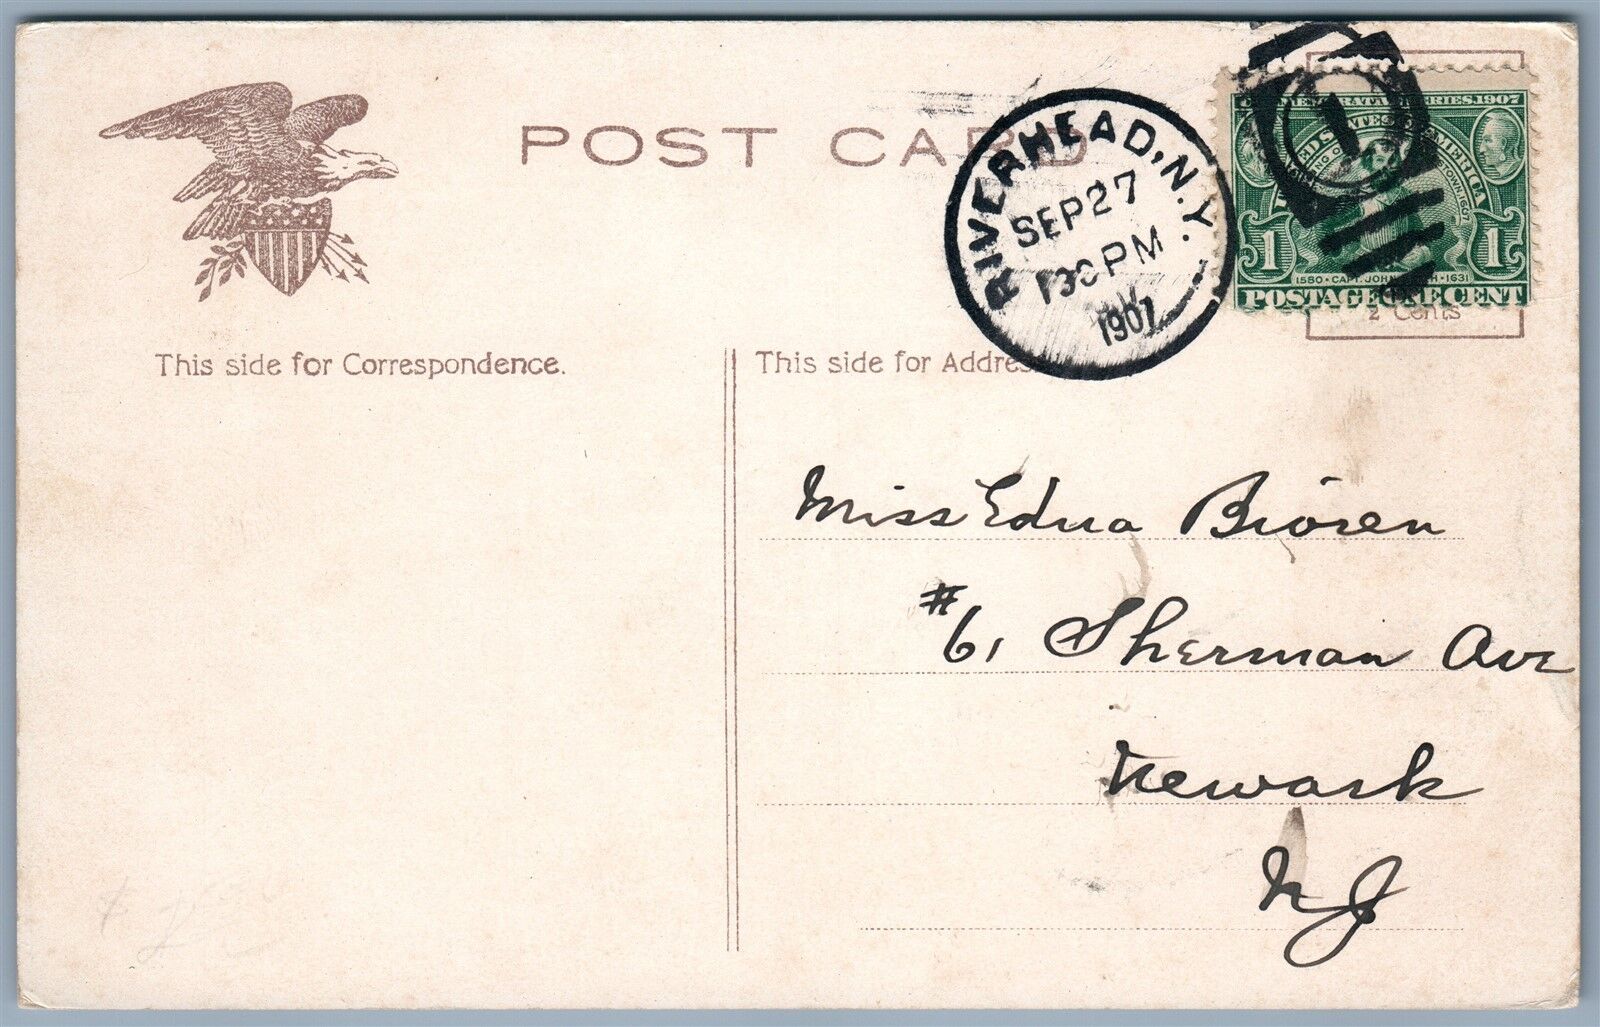 POST CARD
RIVERHEAD, N.Y.
SEP 27
130 PM
1907
1
COMMEMORATIVE SERIES, 1907
1 1
1580 • CAPT. JOHN SMITH • 1631
POSTAGE ONE CENT
2 Cents
This side for Correspondence.
This side for Address
Miss Edna Bioren
#61 Sherman Ave
Newark
NJ